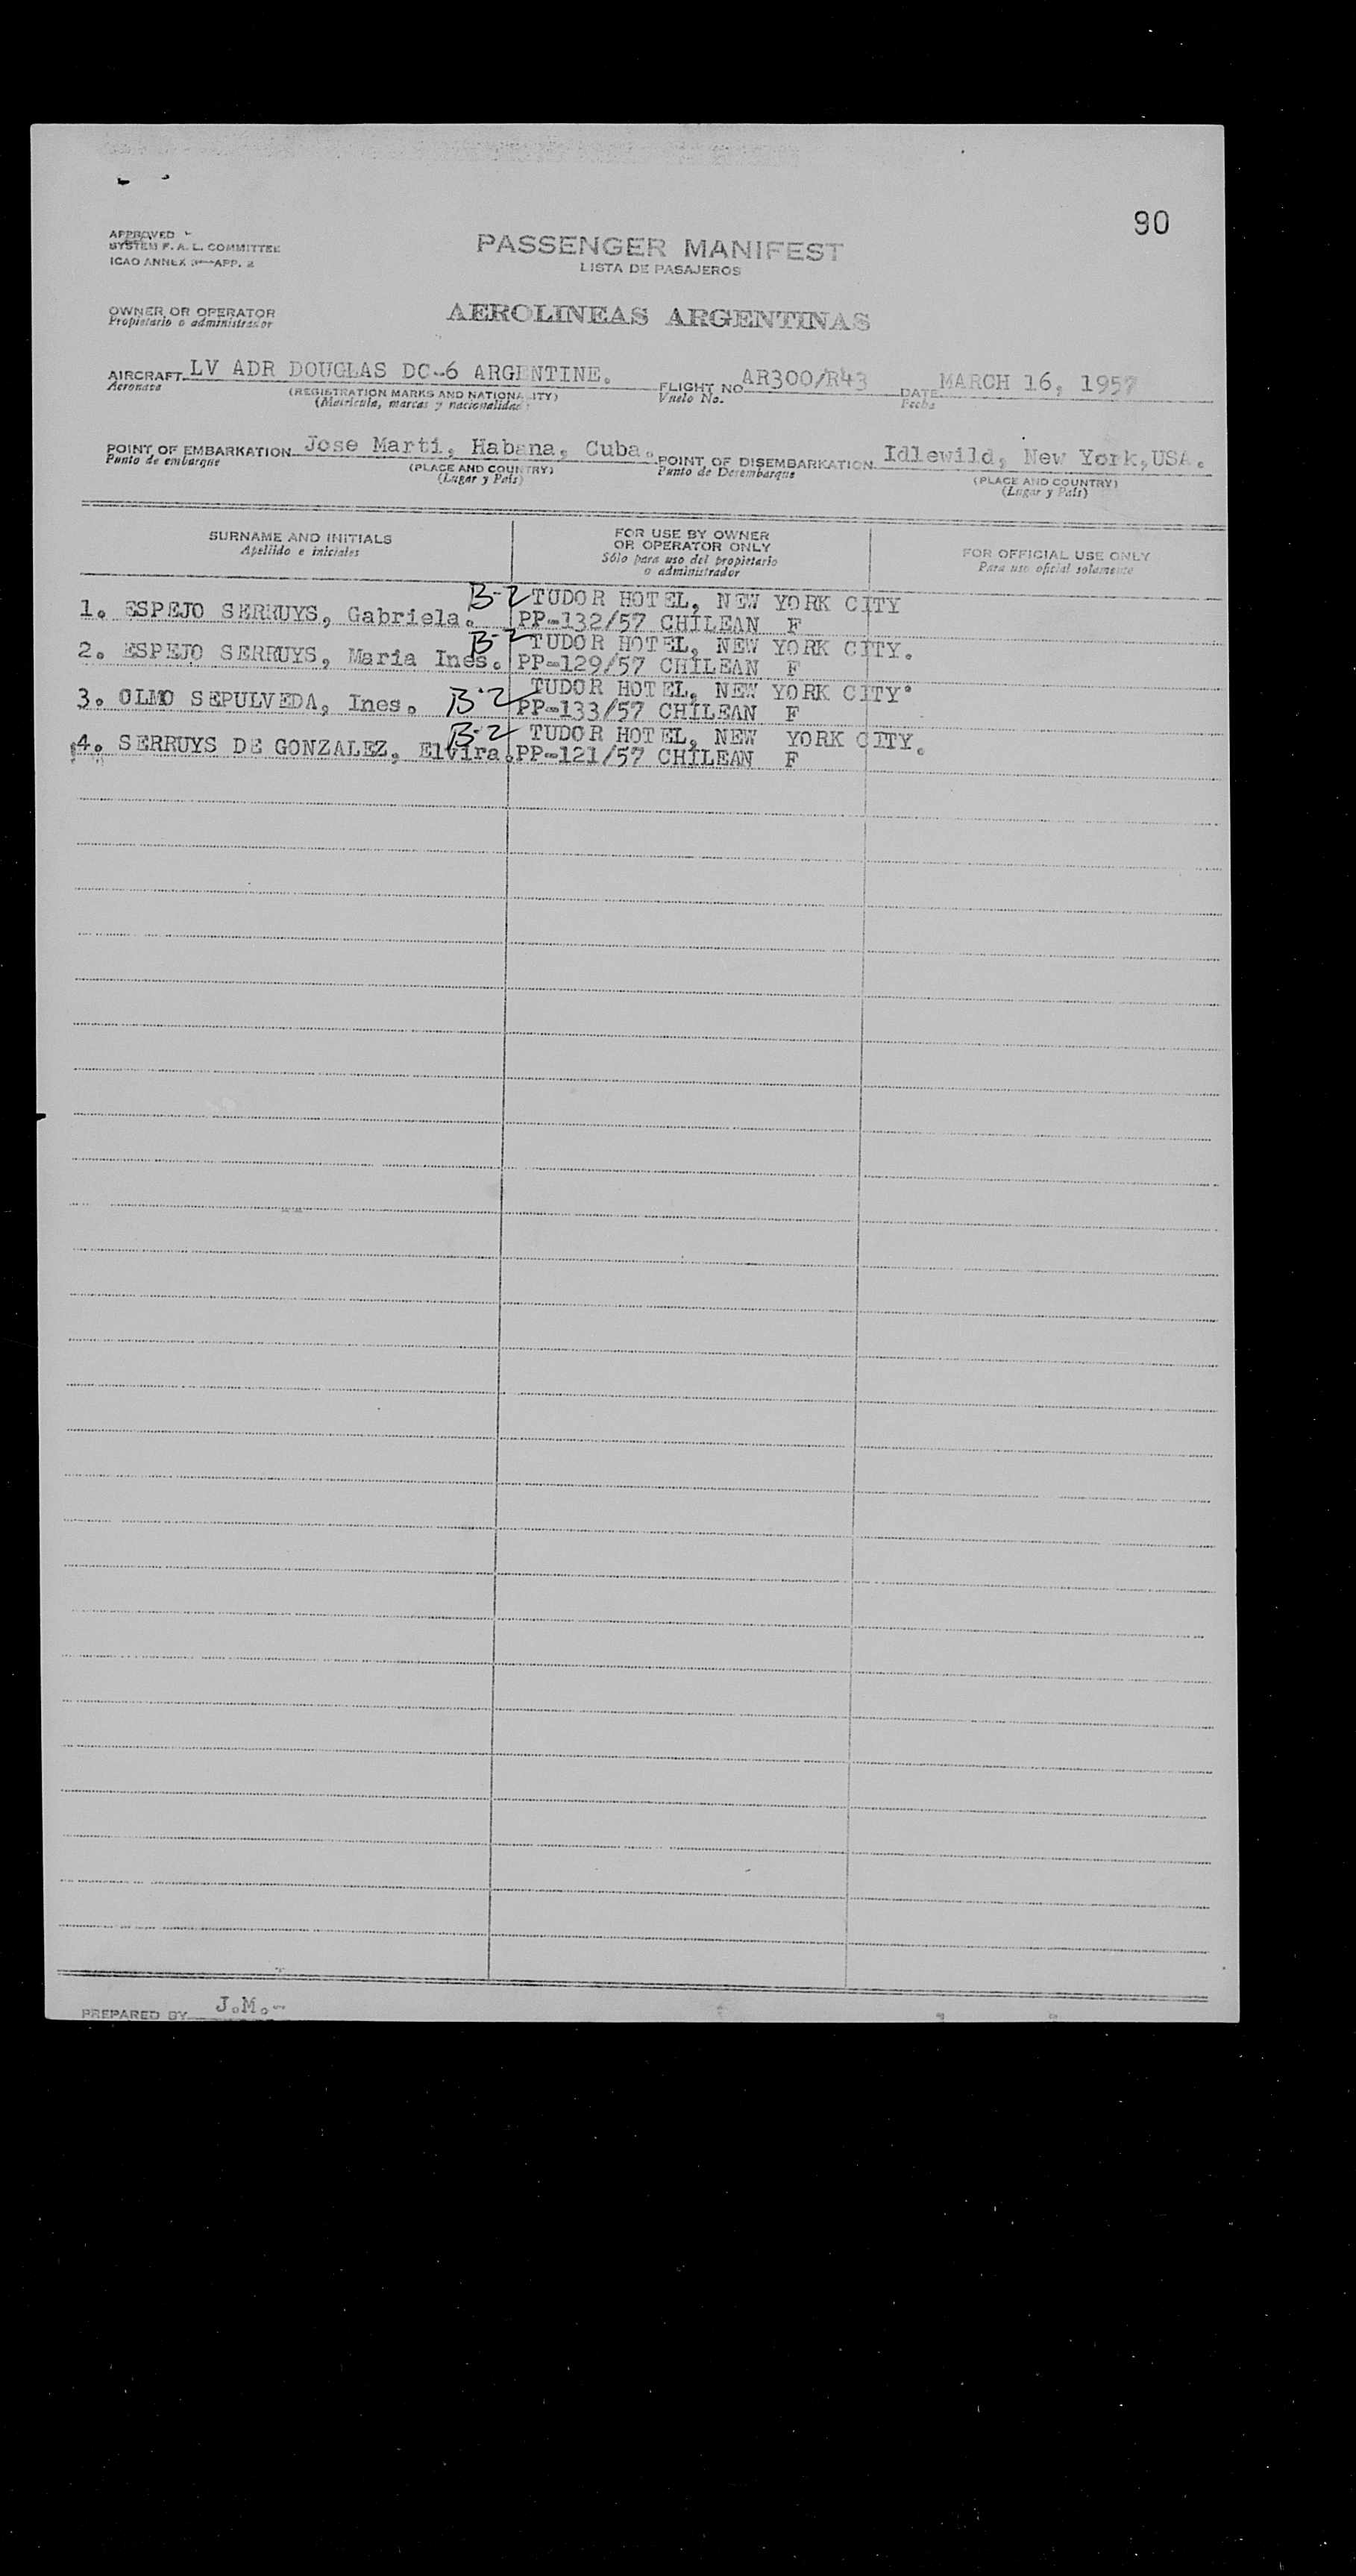 90
APPROVED
SYSTEM F. A. L. COMMITTEE
ICAO ANNEX 9—APP. 2
PASSENGER MANIFEST
LISTA DE PASAJEROS
OWNER OR OPERATOR
Propietario o administrador
AEROLINEAS ARGENTINAS
AIRCRAFT LV ADR DOUGLAS DC-6 ARGENTINE. FLIGHT NO AR300/R43 DATE MARCH 16, 1957
Aeronave (REGISTRATION MARKS AND NATIONALITY) Vuelo No. Fecha
(Matrícula, marcas y nacionalidad)
POINT OF EMBARKATION Jose Marti, Habana, Cuba. POINT OF DISEMBARKATION Idlewild, New York, USA.
Punto de embarque (PLACE AND COUNTRY) Punto de Desembarque (PLACE AND COUNTRY)
(Lugar y País) (Lugar y País)
SURNAME AND INITIALS
Apellido e iniciales
FOR USE BY OWNER
OR OPERATOR ONLY
Sólo para uso del propietario
o administrador
FOR OFFICIAL USE ONLY
Para uso oficial solamente
B-2 TUDOR HOTEL, NEW YORK CITY
1. ESPEJO SERRUYS, Gabriela. PP-132/57 CHILEAN F
B-2 TUDOR HOTEL, NEW YORK CITY.
2. ESPEJO SERRUYS, Maria Ines. PP-129/57 CHILEAN F
TUDOR HOTEL, NEW YORK CITY.
3. OLMO SEPULVEDA, Ines. B-2 PP-133/57 CHILEAN F
B-2 TUDOR HOTEL, NEW YORK CITY.
4. SERRUYS DE GONZALEZ, Elvira. PP-121/57 CHILEAN F
PREPARED BY J.M.-